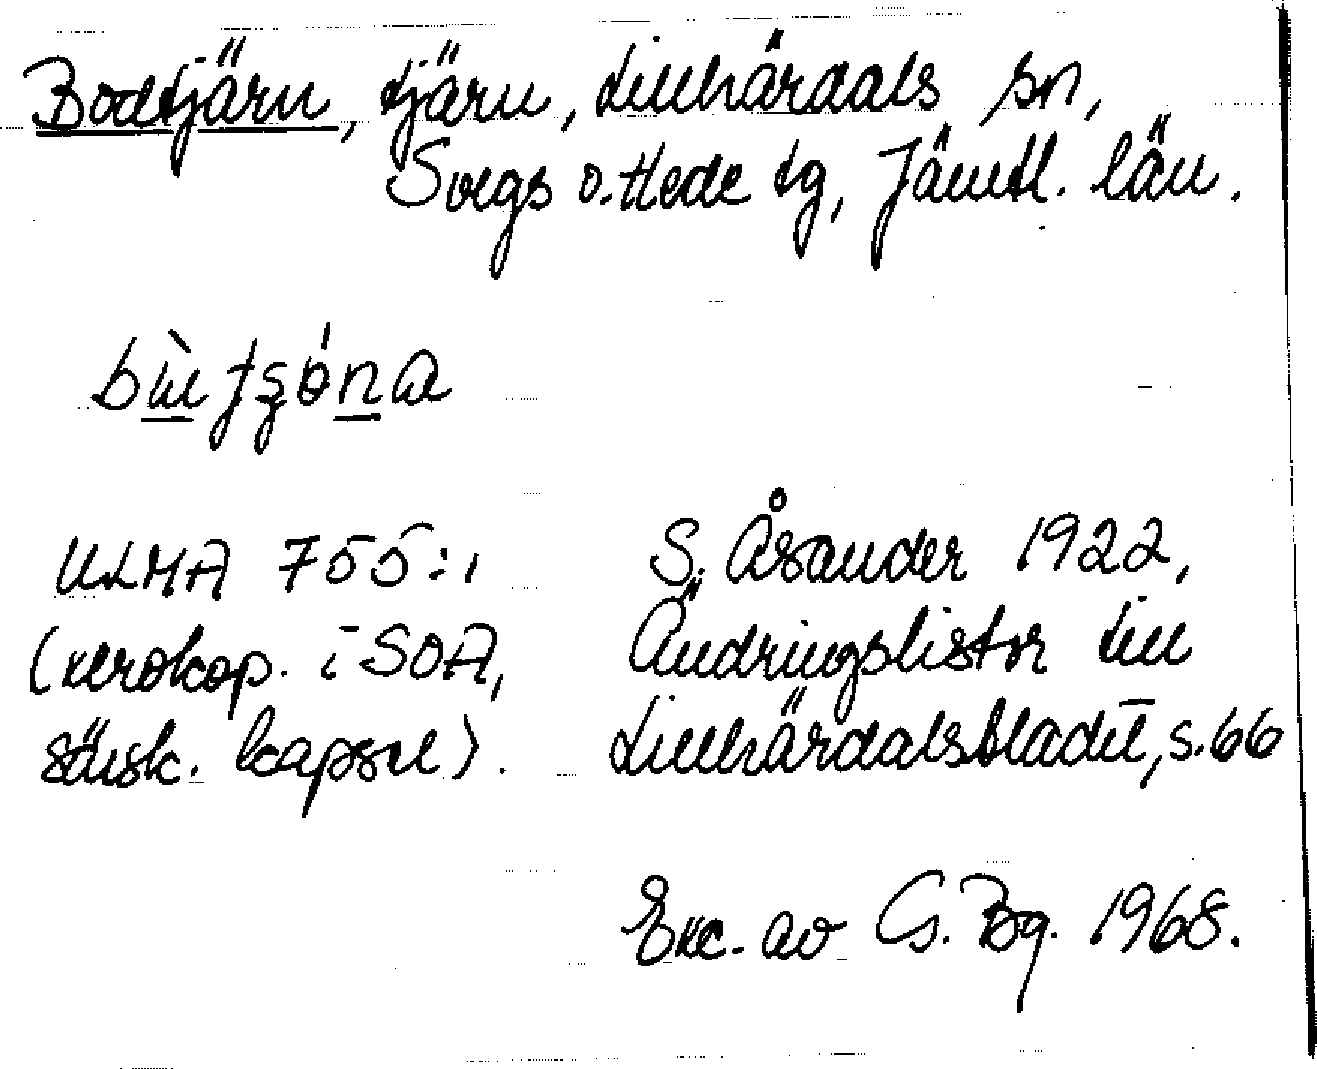 Bodtjärn, tjärn, Lillhärdals sn,
Svegs o. Hede tg, Jämtl. län.
ULMA 755:1
(xerokop. i SOA,
särsk. kapsel).
S. Åsander 1922,
Ändringslistor till
Lillhärdalsbladet, s. 66
Exc. av G. Bg. 1968.